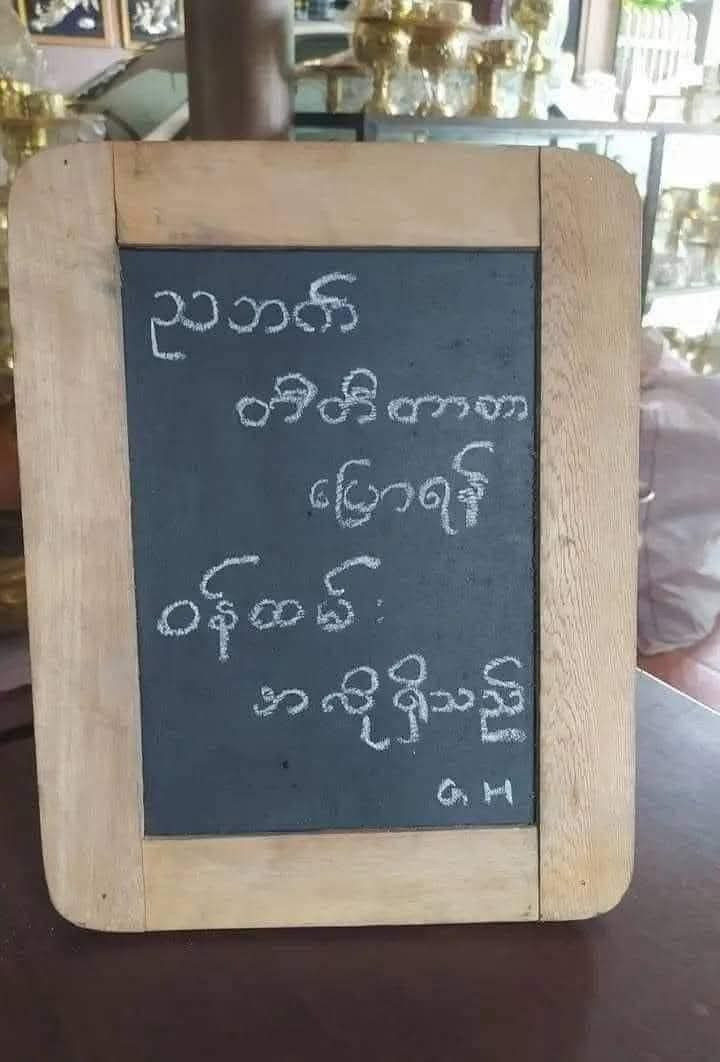 ညဘက်
တီတီတာတာ
ပြောရန်
ဝန်ထမ်း
အလိုရှိသည်
G H